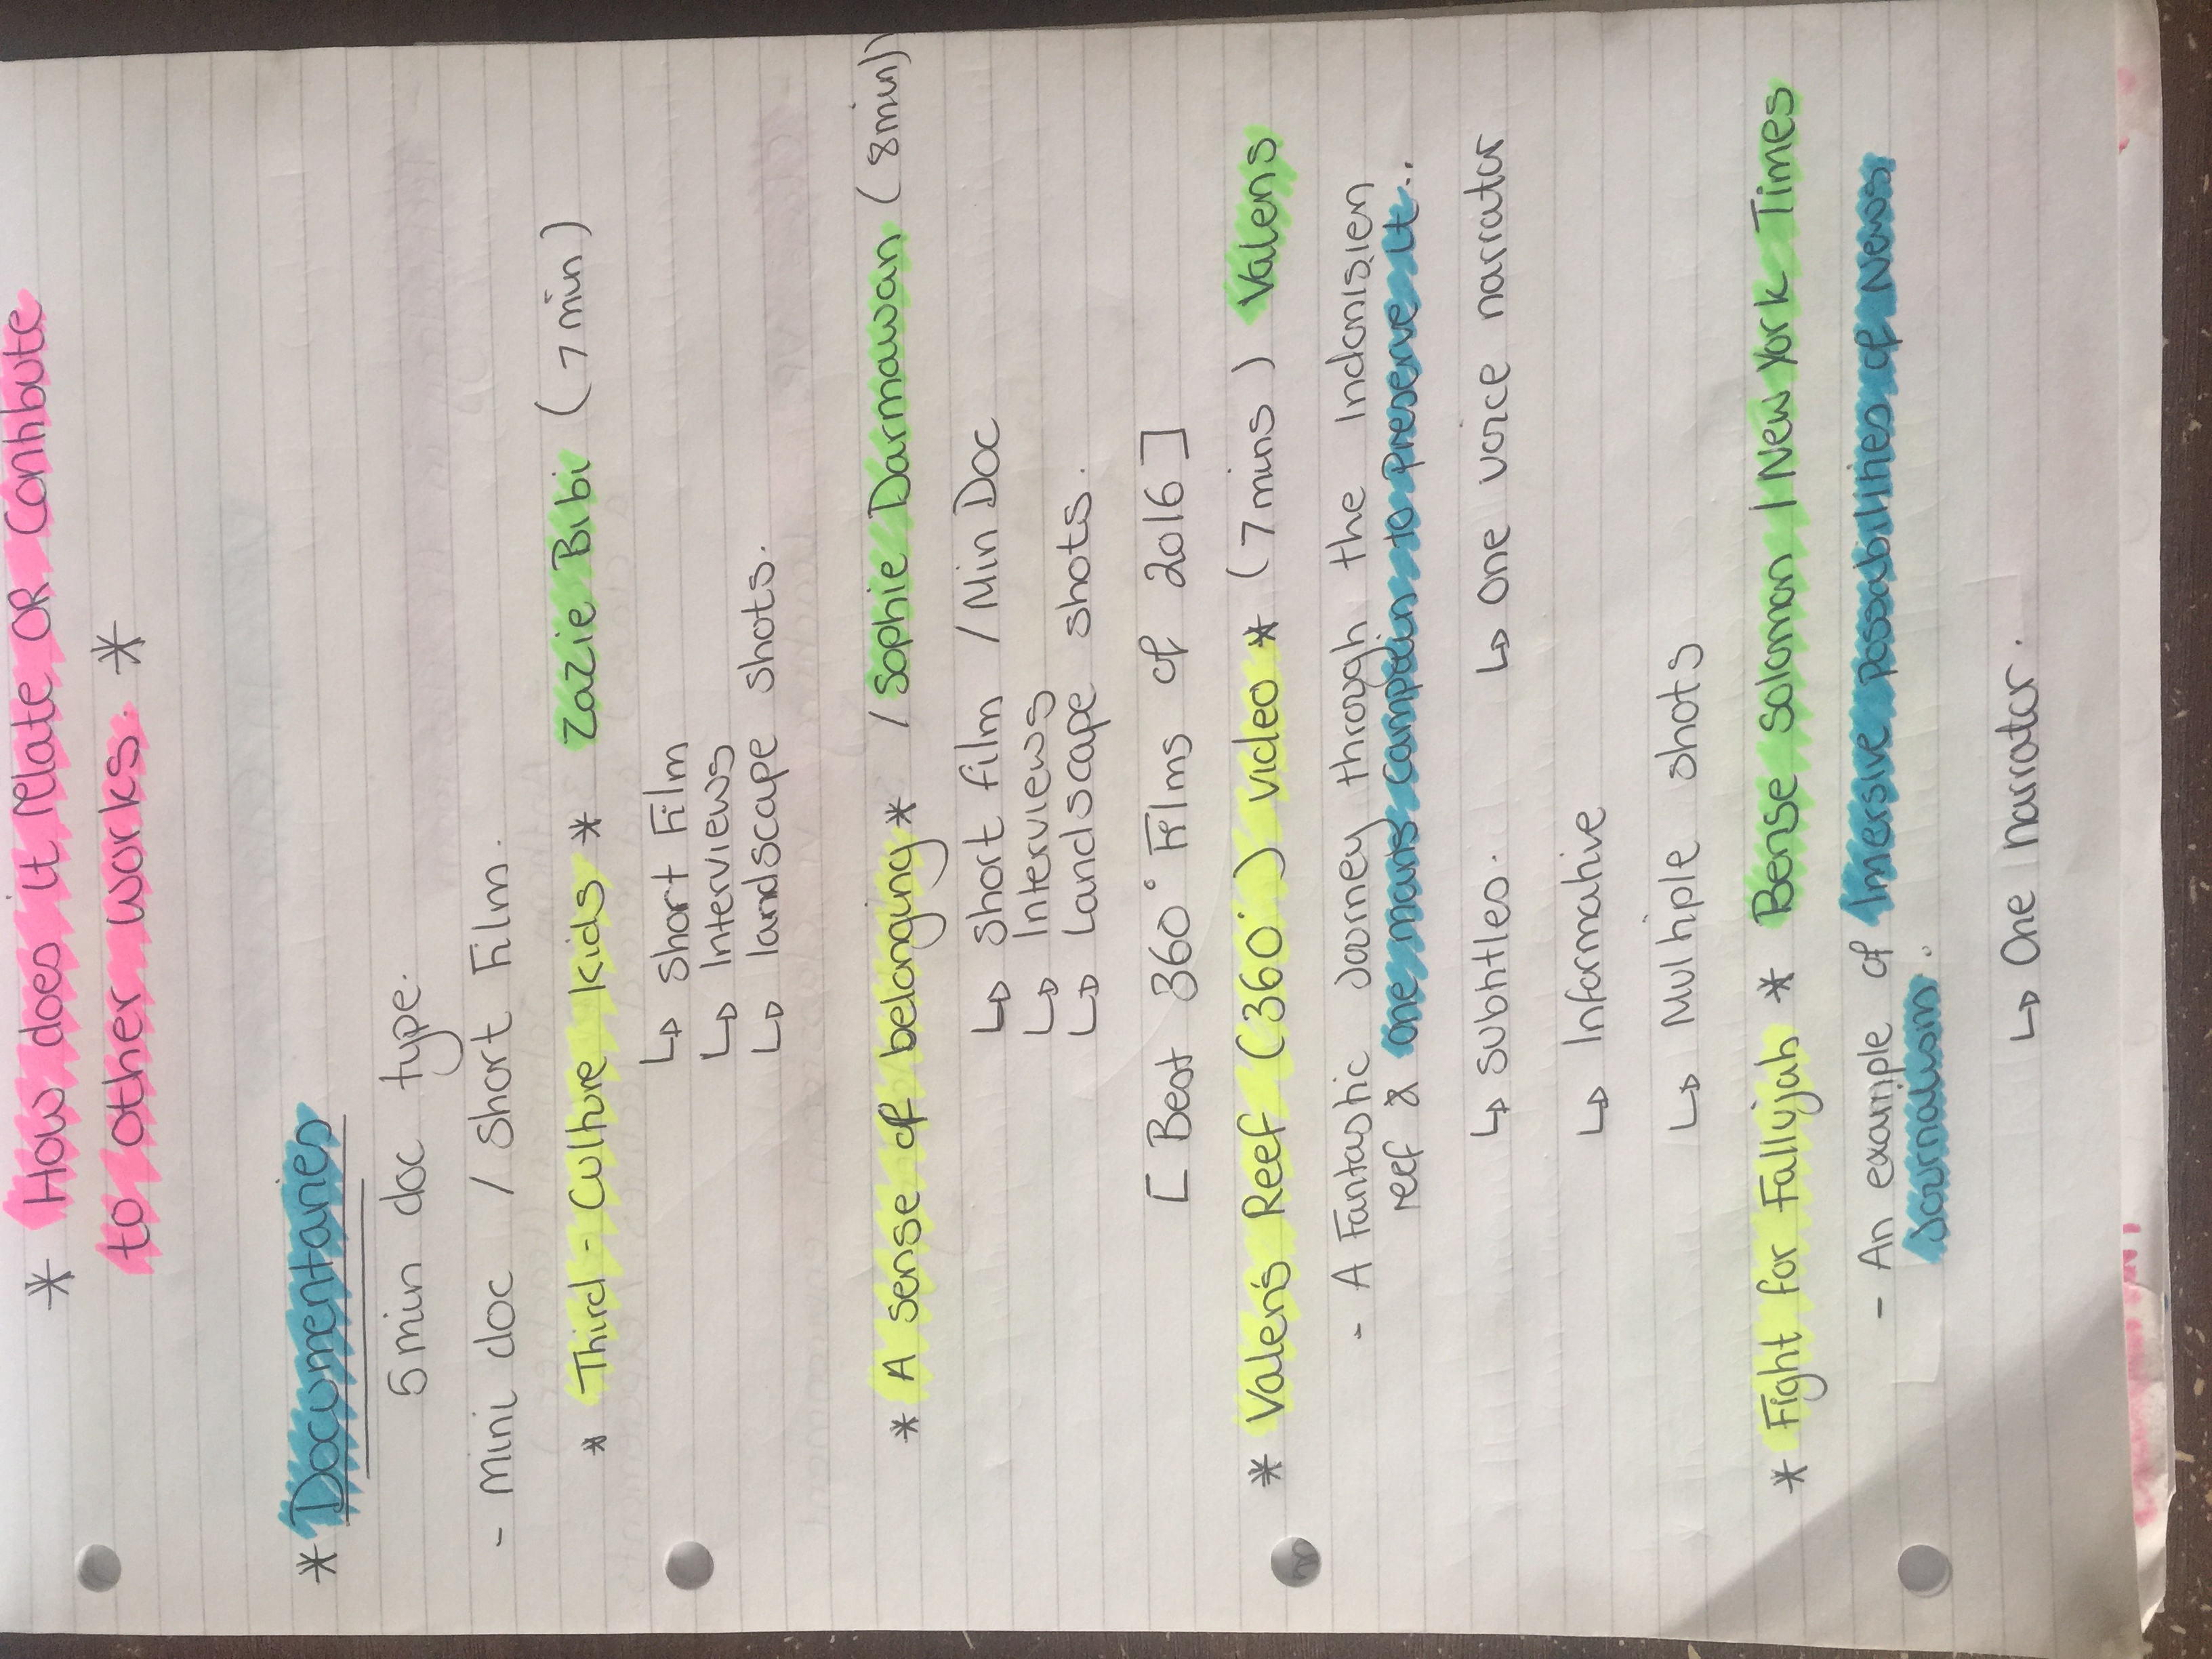 * How does it relate OR Contribute
to other works. *
* Documentaries
5 min doc type.
- Mini doc / Short Film.
* Third - Culture Kids * Zazie Bibi (7 min)
↳ Short Film
↳ Interviews
↳ landscape shots.
* A sense of belonging * / Sophie Darmawan (8min)
↳ short film / Min Doc
↳ Interviews
↳ Landscape shots.
[ Best 360° Films of 2016 ]
* Valen's Reef (360°) video * (7mins) Valens
- A Fantastic Journey through the Indonisien
reef & one man's campain to preserve it..
↳ Subtitles. ↳ One voice narrator
↳ Informative
↳ Multiple shots
* Fight for Fallujah * Bense Soloman / New York Times
- An example of Imersive possabilities of News
Journalism.
↳ One narrator.